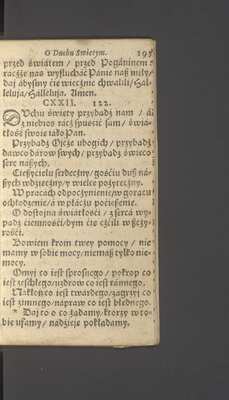 O Duchu Swietym. 195
przed świátem / przed Pogáninem:
racżże nas wysłucháć Pánie naß miły /
daj ábysmy cie wiecżnie chwalili / Hal-
leluja / Halleluja. Amen.
CXXII. 122.
DUchu święty przybądz nam /
z niebios racż spuścić sam / świá-
tłość swoie iáko Pan.
Przybądź Oycże ubogich / przybądź
dawco dárow swych / przybądź świeco
serc nászych.
Cießycielu serdecżny / gościu duß ná-
ßych wdzięcżny / y wielce pożytecżny.
W pracach odpocżynienie / w gorącu
ochłodzenie / á w płácżu pocießenie.
O dostojna świátłości / z sercá wy-
pądz ciemności / bym cie cżcili w ßcży-
rości.
Bowiem krom twey pomocy / nie
mamy w sobie mocy / niemáß tylko nie-
mocy.
Omyj co iest sprosnego / pokrop co
iest zeschłego / uzdrow co iest ránnego.
Nákłoń co iest twárdego / zágrzey co
iest zimnego / napraw co iest błędnego.
* Daj to o co żądamy / ktorzy w to-
bie ufamy / nádzieje pokładamy.